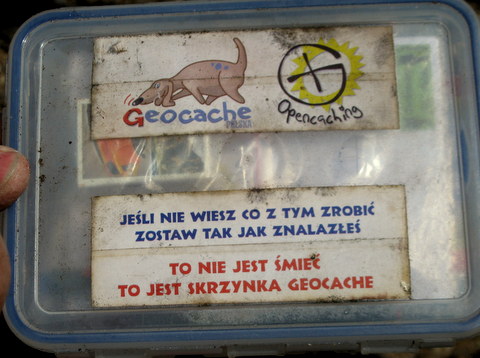 Geocache
Opencaching
JEŚLI NIE WIESZ CO Z TYM ZROBIĆ
ZOSTAW TAK JAK ZNALAZŁEŚ
TO NIE JEST ŚMIEĆ
TO JEST SKRZYNKA GEOCACHE